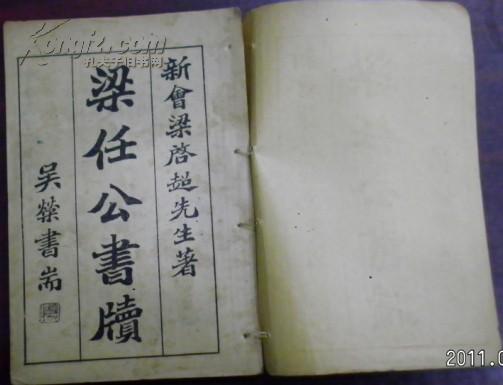 新會梁啓超先生著
梁任公書牘
吴榮書耑
Kongfz.com
孔夫子旧书网
2011.0